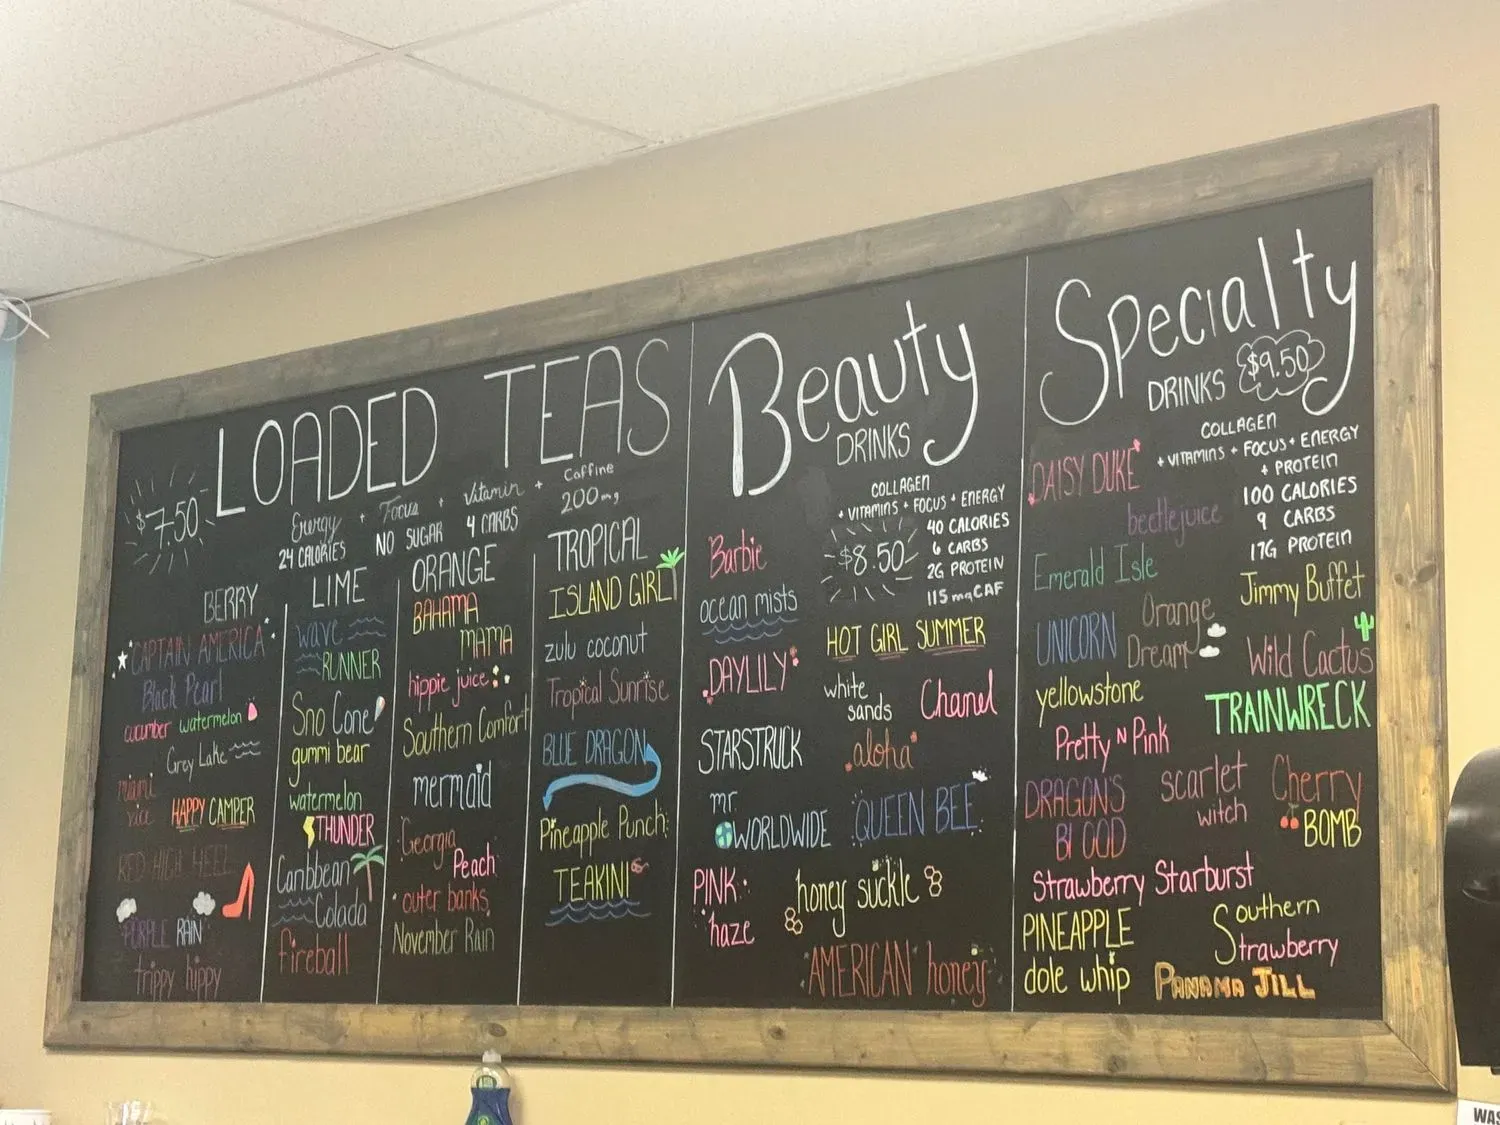 LOADED TEAS
$7.50
Energy + Focus + Vitamin + Caffine
24 CALORIES NO SUGAR 4 CARBS 200mg
BERRY
CAPTAIN AMERICA
Black Pearl
cucumber watermelon
Grey Lake
miami
vice
HAPPY CAMPER
RED HIGH HEEL
PURPLE RAIN
trippy hippy
LIME
wave
RUNNER
Sno Cone
gummi bear
watermelon
THUNDER
Caribbean
Colada
fireball
ORANGE
BAHAMA
MAMA
hippie juice
Southern Comfort
mermaid
Georgia
Peach
outer banks
November Rain
TROPICAL
ISLAND GIRL
zulu coconut
Tropical Sunrise
BLUE DRAGON
Pineapple Punch
TEAKINI
Beauty
DRINKS
COLLAGEN
+ VITAMINS + FOCUS + ENERGY
$8.50
40 CALORIES
6 CARBS
2G PROTEIN
115 mg CAF
Barbie
ocean mists
HOT GIRL SUMMER
DAYLILY
white
sands
Chanel
STARSTRUCK
aloha
mr.
WORLDWIDE
QUEEN BEE
PINK
haze
honey suckle
AMERICAN honey
Specialty
DRINKS $9.50
COLLAGEN
+ VITAMINS + FOCUS + ENERGY
+ PROTEIN
100 CALORIES
9 CARBS
17G PROTEIN
DAISY DUKE
beetlejuice
Emerald Isle
Jimmy Buffet
UNICORN
Orange
Dream
Wild Cactus
yellowstone
TRAINWRECK
Pretty N Pink
DRAGON'S
BLOOD
scarlet
witch
Cherry
BOMB
Strawberry Starburst
PINEAPPLE
dole whip
Southern
Strawberry
PANAMA JILL
WAS